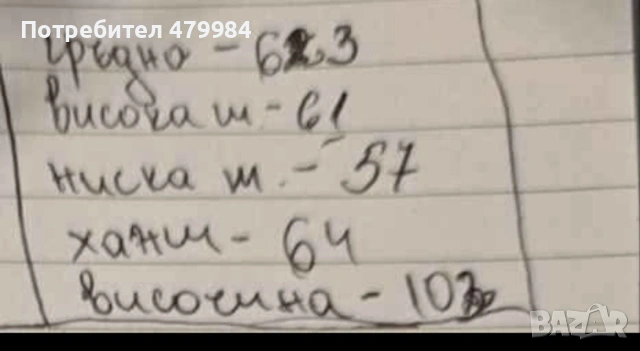 Потребител 479984
гръдна - 63
висока т - 61
ниска т. - 57
ханш - 64
височина - 103
BAZAR